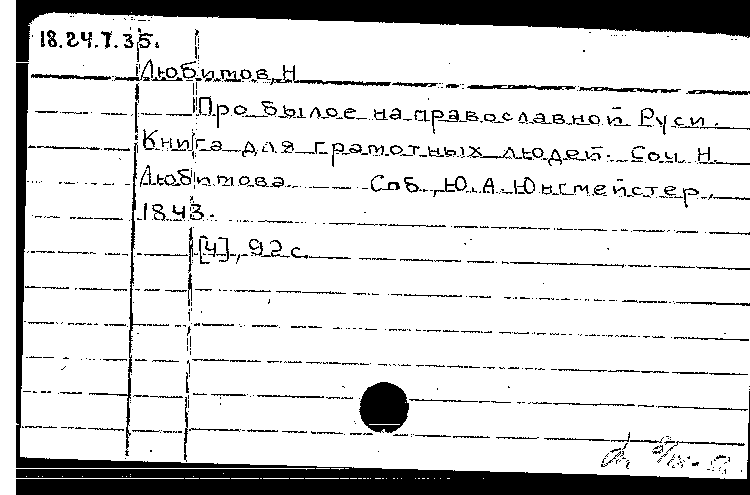 18.24.7.35.
Любимов, Н
Про былое на православной Руси.
Книга для грамотных людей. Соч. Н.
Любимова Спб., Ю. А. Юнгмейстер,
1843.
[4], 92 с.